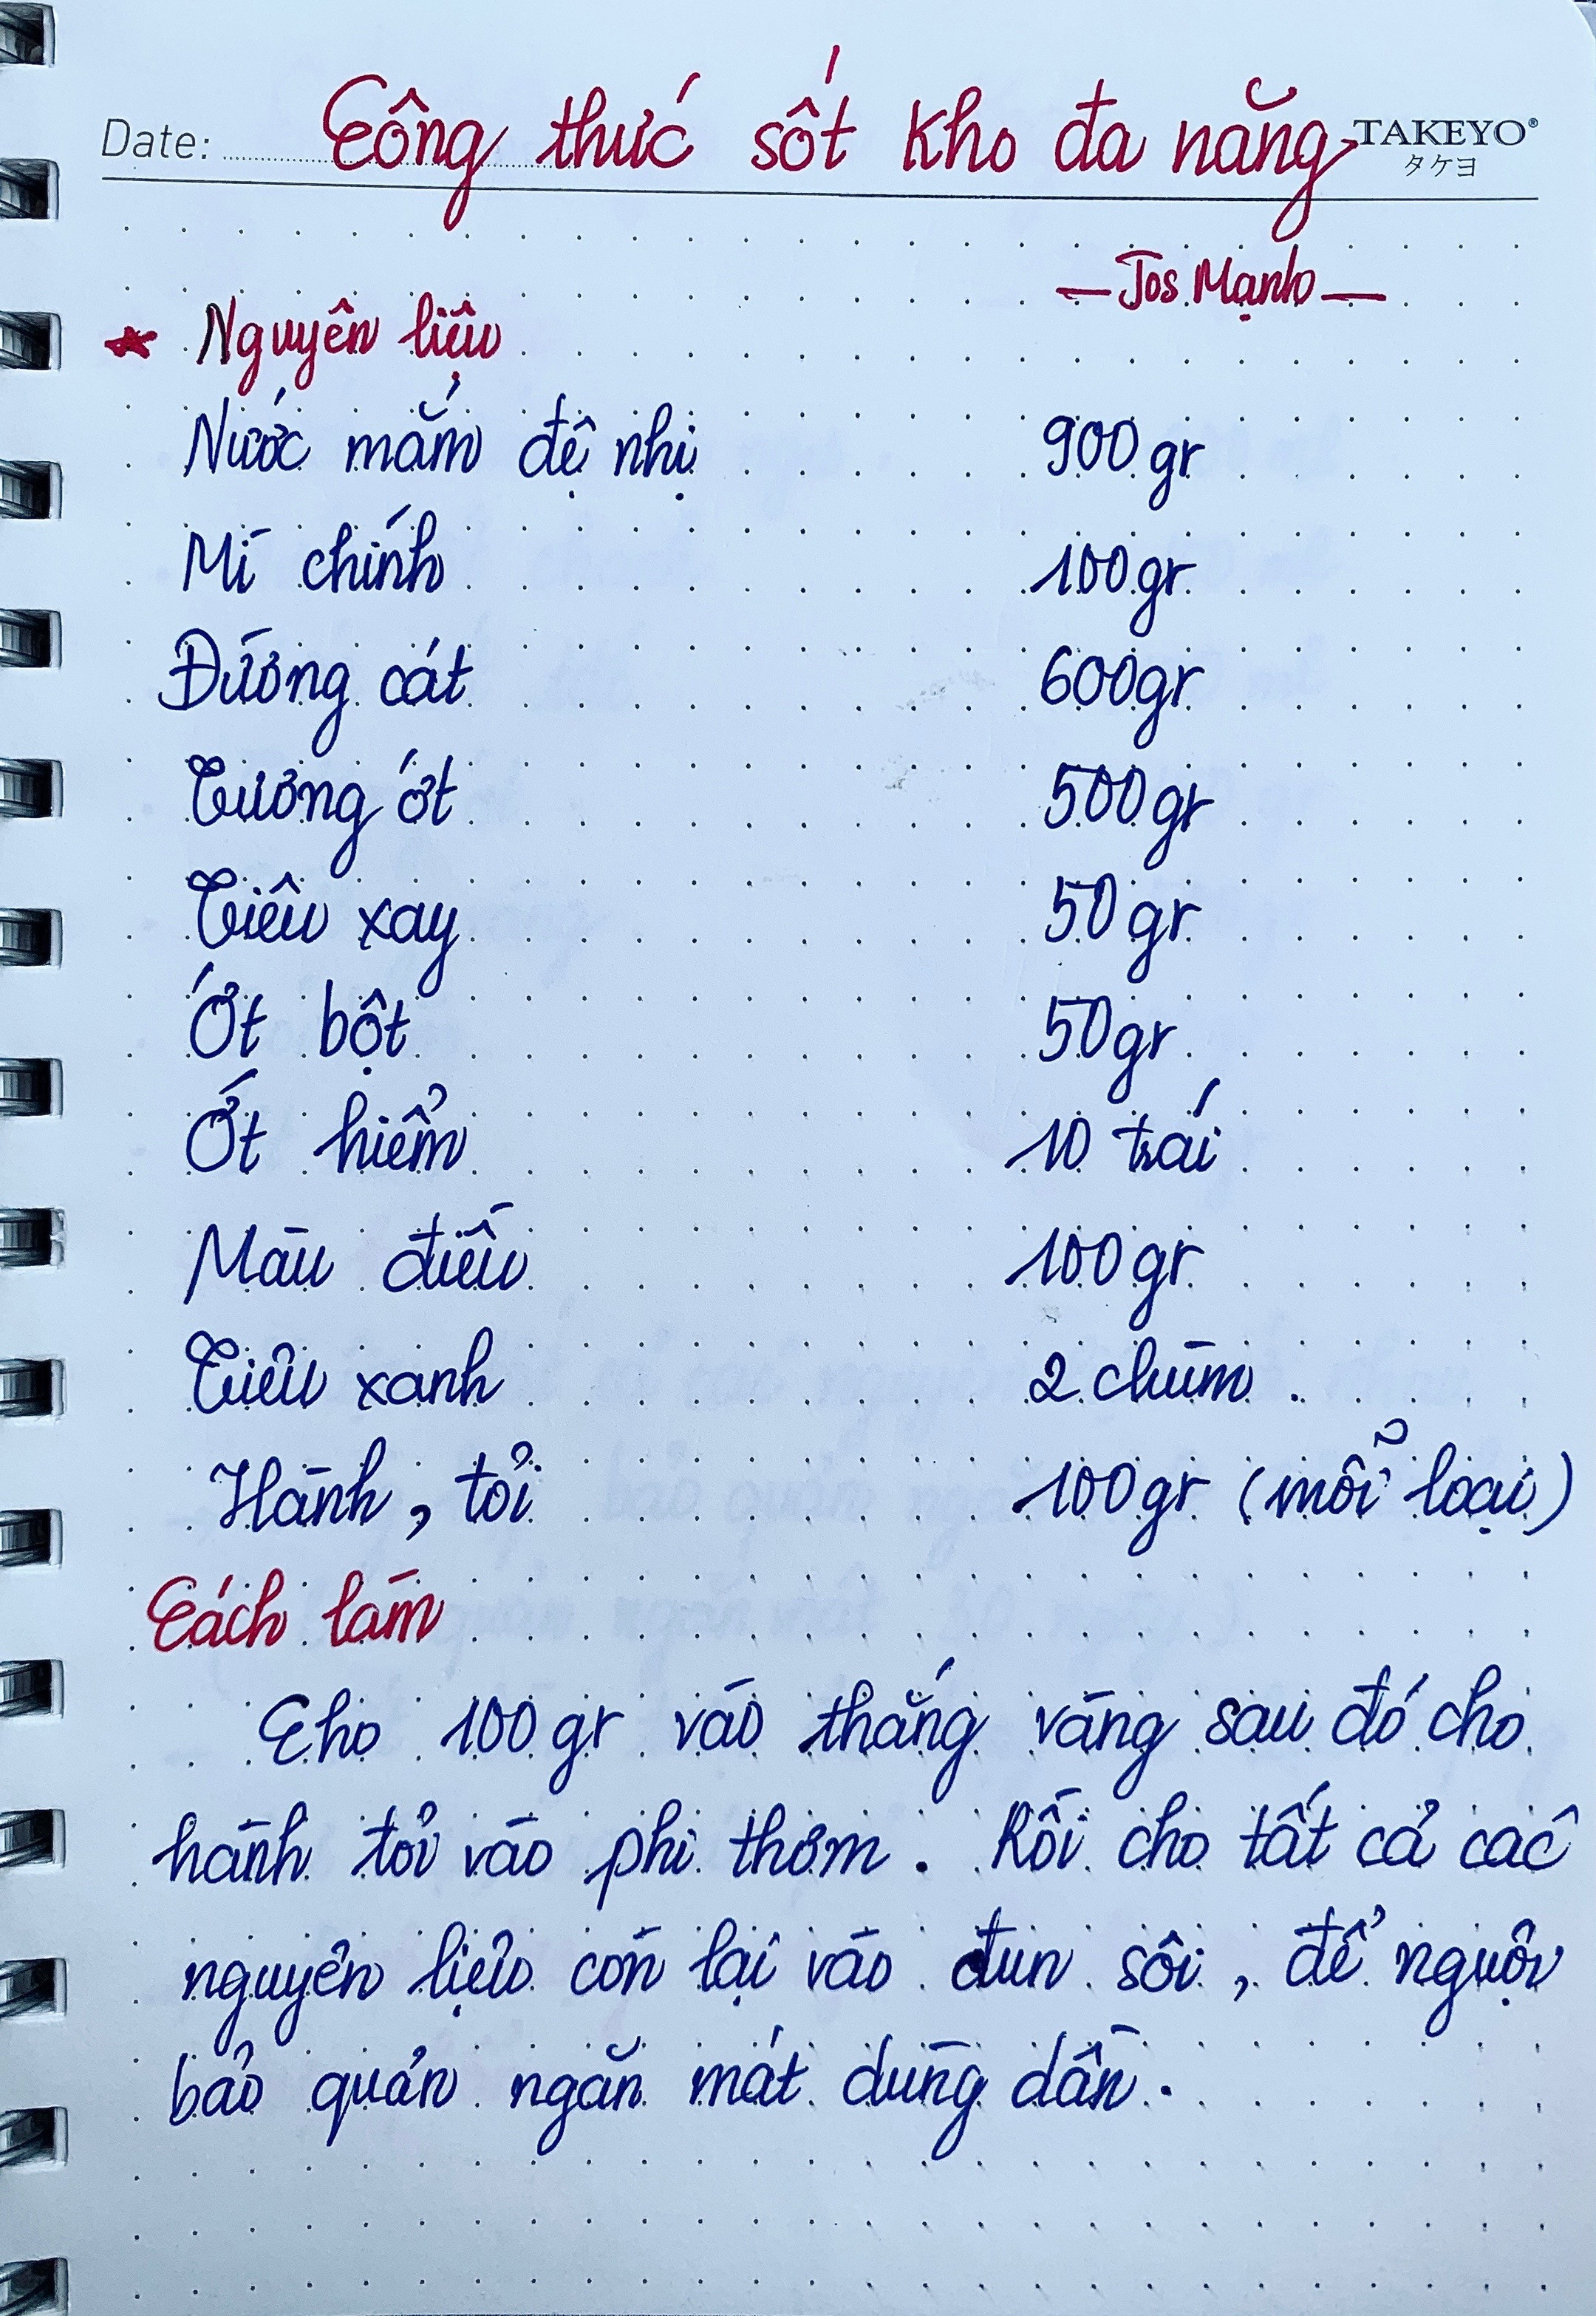 Date: Công thức sốt kho đa năng TAKEYO®
タケヨ
— Jos Mạnh —
* Nguyên liệu
Nước mắm đệ nhị 900 gr
Mì chính 100gr
Đường cát 600gr
Tương ớt 500gr
Tiêu xay 50gr
Ớt bột 50gr
Ớt hiểm 10 trái
Màu điều 100gr
Tiêu xanh 2 chùm
Hành, tỏi 100gr (mỗi loại)
Cách làm
Cho 100gr vào thắng vàng sau đó cho
hành tỏi vào phi thơm. Rồi cho tất cả các
nguyên liệu còn lại vào đun sôi, để nguội
bảo quản ngăn mát dùng dần.